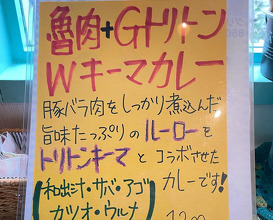 魯肉+Gトリトン
Wキーマカレー
豚バラ肉をしっかり煮込んだ
旨味たっぷりのルーローを
トリトンキーマとコラボさせた
カレーです!
(和出汁・サバ・アゴ
カツオ・ウルメ